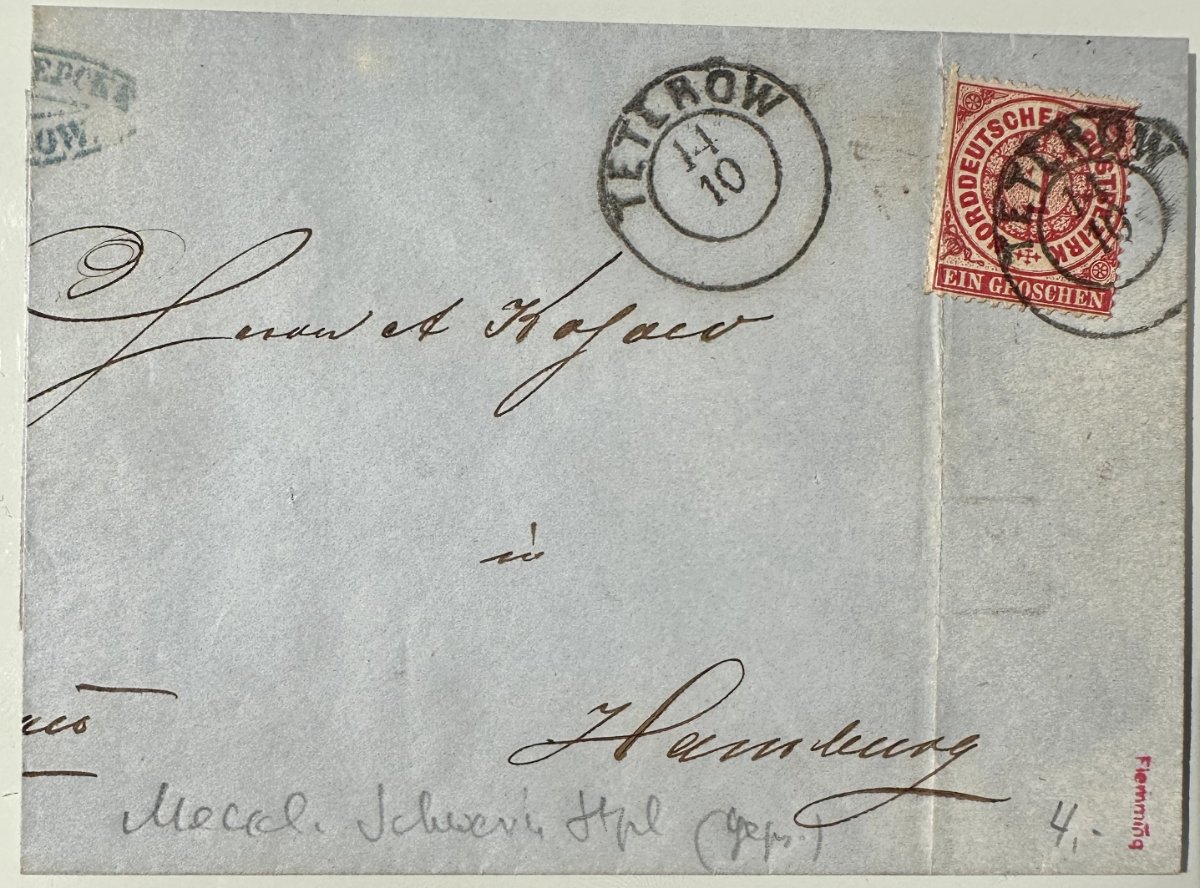 TETEROW
14
10
NORDDEUTSCHER POSTBEZIRK
EIN GROSCHEN
TETEROW
14
10
OW.
in
Hamburg
Meckl. Schwerin Stpl (gepr.)
4,-
Flemming